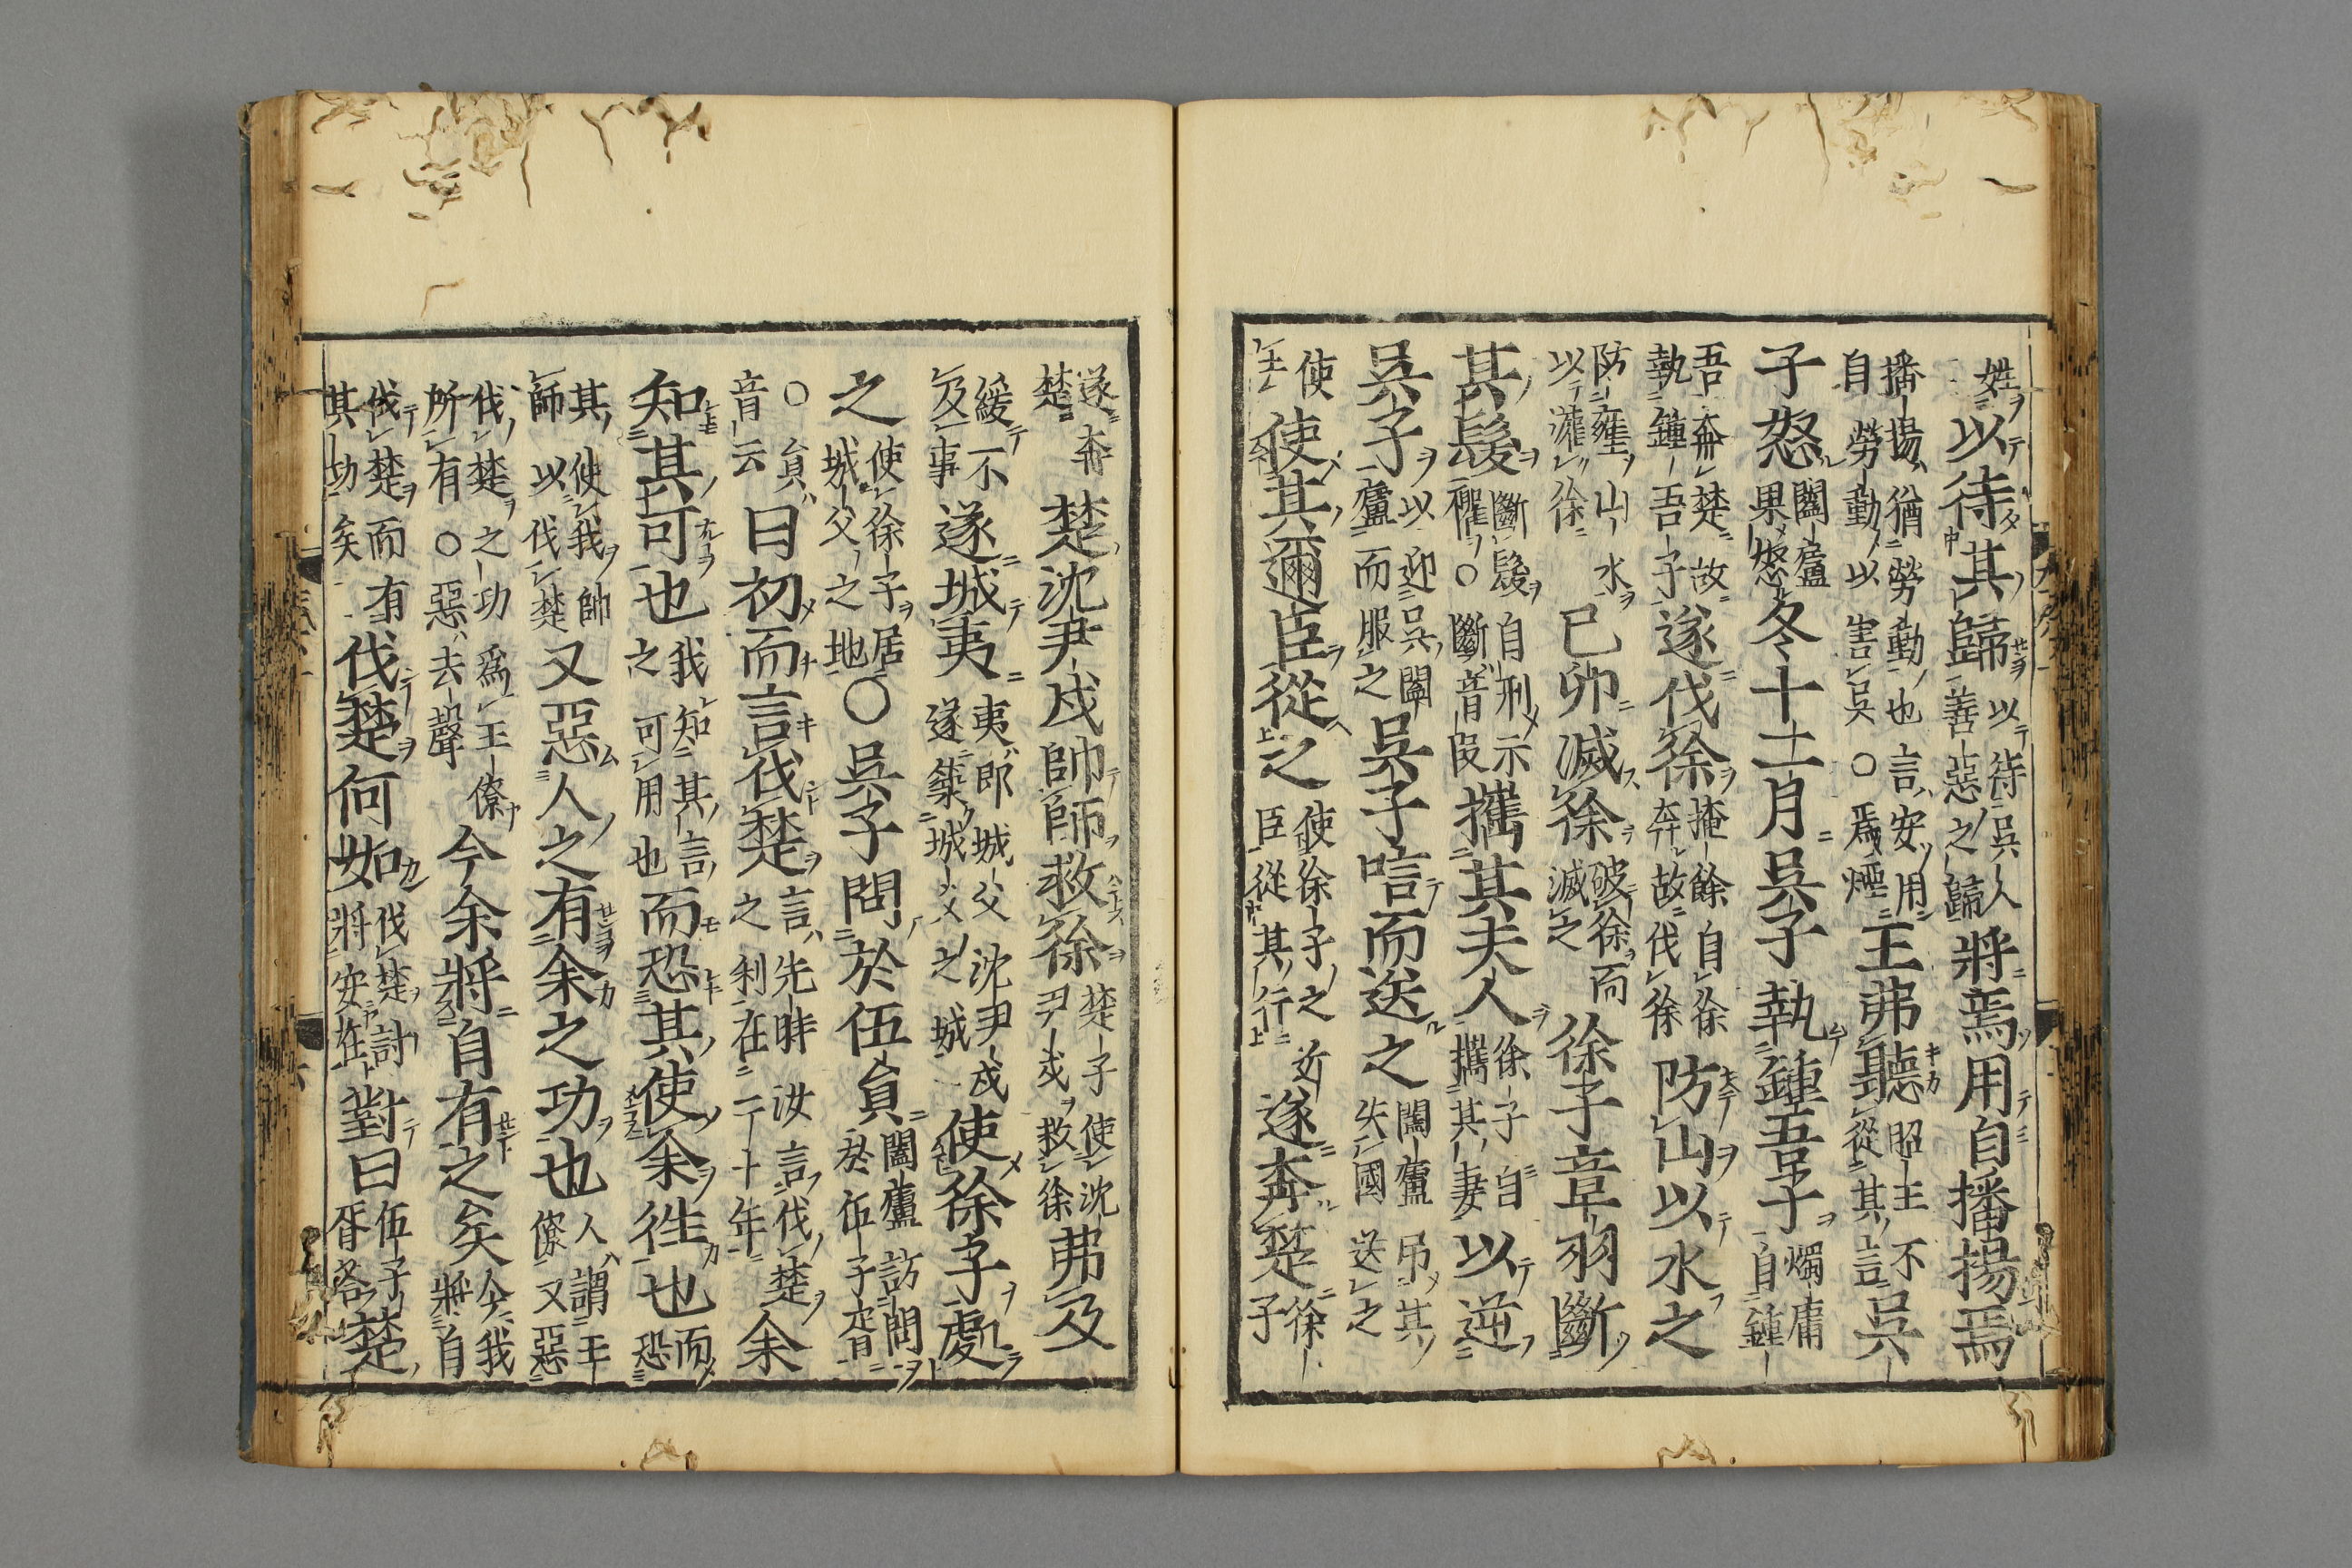 姓以待其歸以待吳人善惡之歸將焉用自播揚焉
播揚猶勞動也言安用自勞動以害吳○焉煙王弗聽昭王不從其言吳
子怒闔廬果怒冬十二月吳子執鍾吾子燭庸自鍾
吾奔楚故執鍾吾子遂伐徐掩餘自徐奔故伐徐防山以水之
防壅山水以灌徐已卯滅徐破徐而滅之徐子章羽斷
其髮斷髮自刑示懼○斷音段攜其夫人徐子自攜其妻以逆
吳子以迎吳闔廬而服之吳子唁而送之闔廬吊其失國送之
使王使其邇臣從之使徐子之近臣從其行遂奔楚徐子
遂奔楚楚沈尹戌帥師救徐楚子使沈尹戌救徐弗及
緩不及事遂城夷夷即城父沈尹戌遂築城父之城使徐子處
之使徐子居城父之地○吳子問於伍貟闔廬訪問於伍子胥
○貟音云曰初而言伐楚言先時汝言伐楚之利在二十年余
知其可也我知其言之可用也而恐其使余往也而恐
其使我帥師以伐楚又惡人之有余之功也人謂王僚又惡
伐楚之功爲王僚所有○惡去聲今余將自有之矣今我將自
伐楚而有其功矣伐楚何如伐楚計將安在對曰伍子胥荅楚